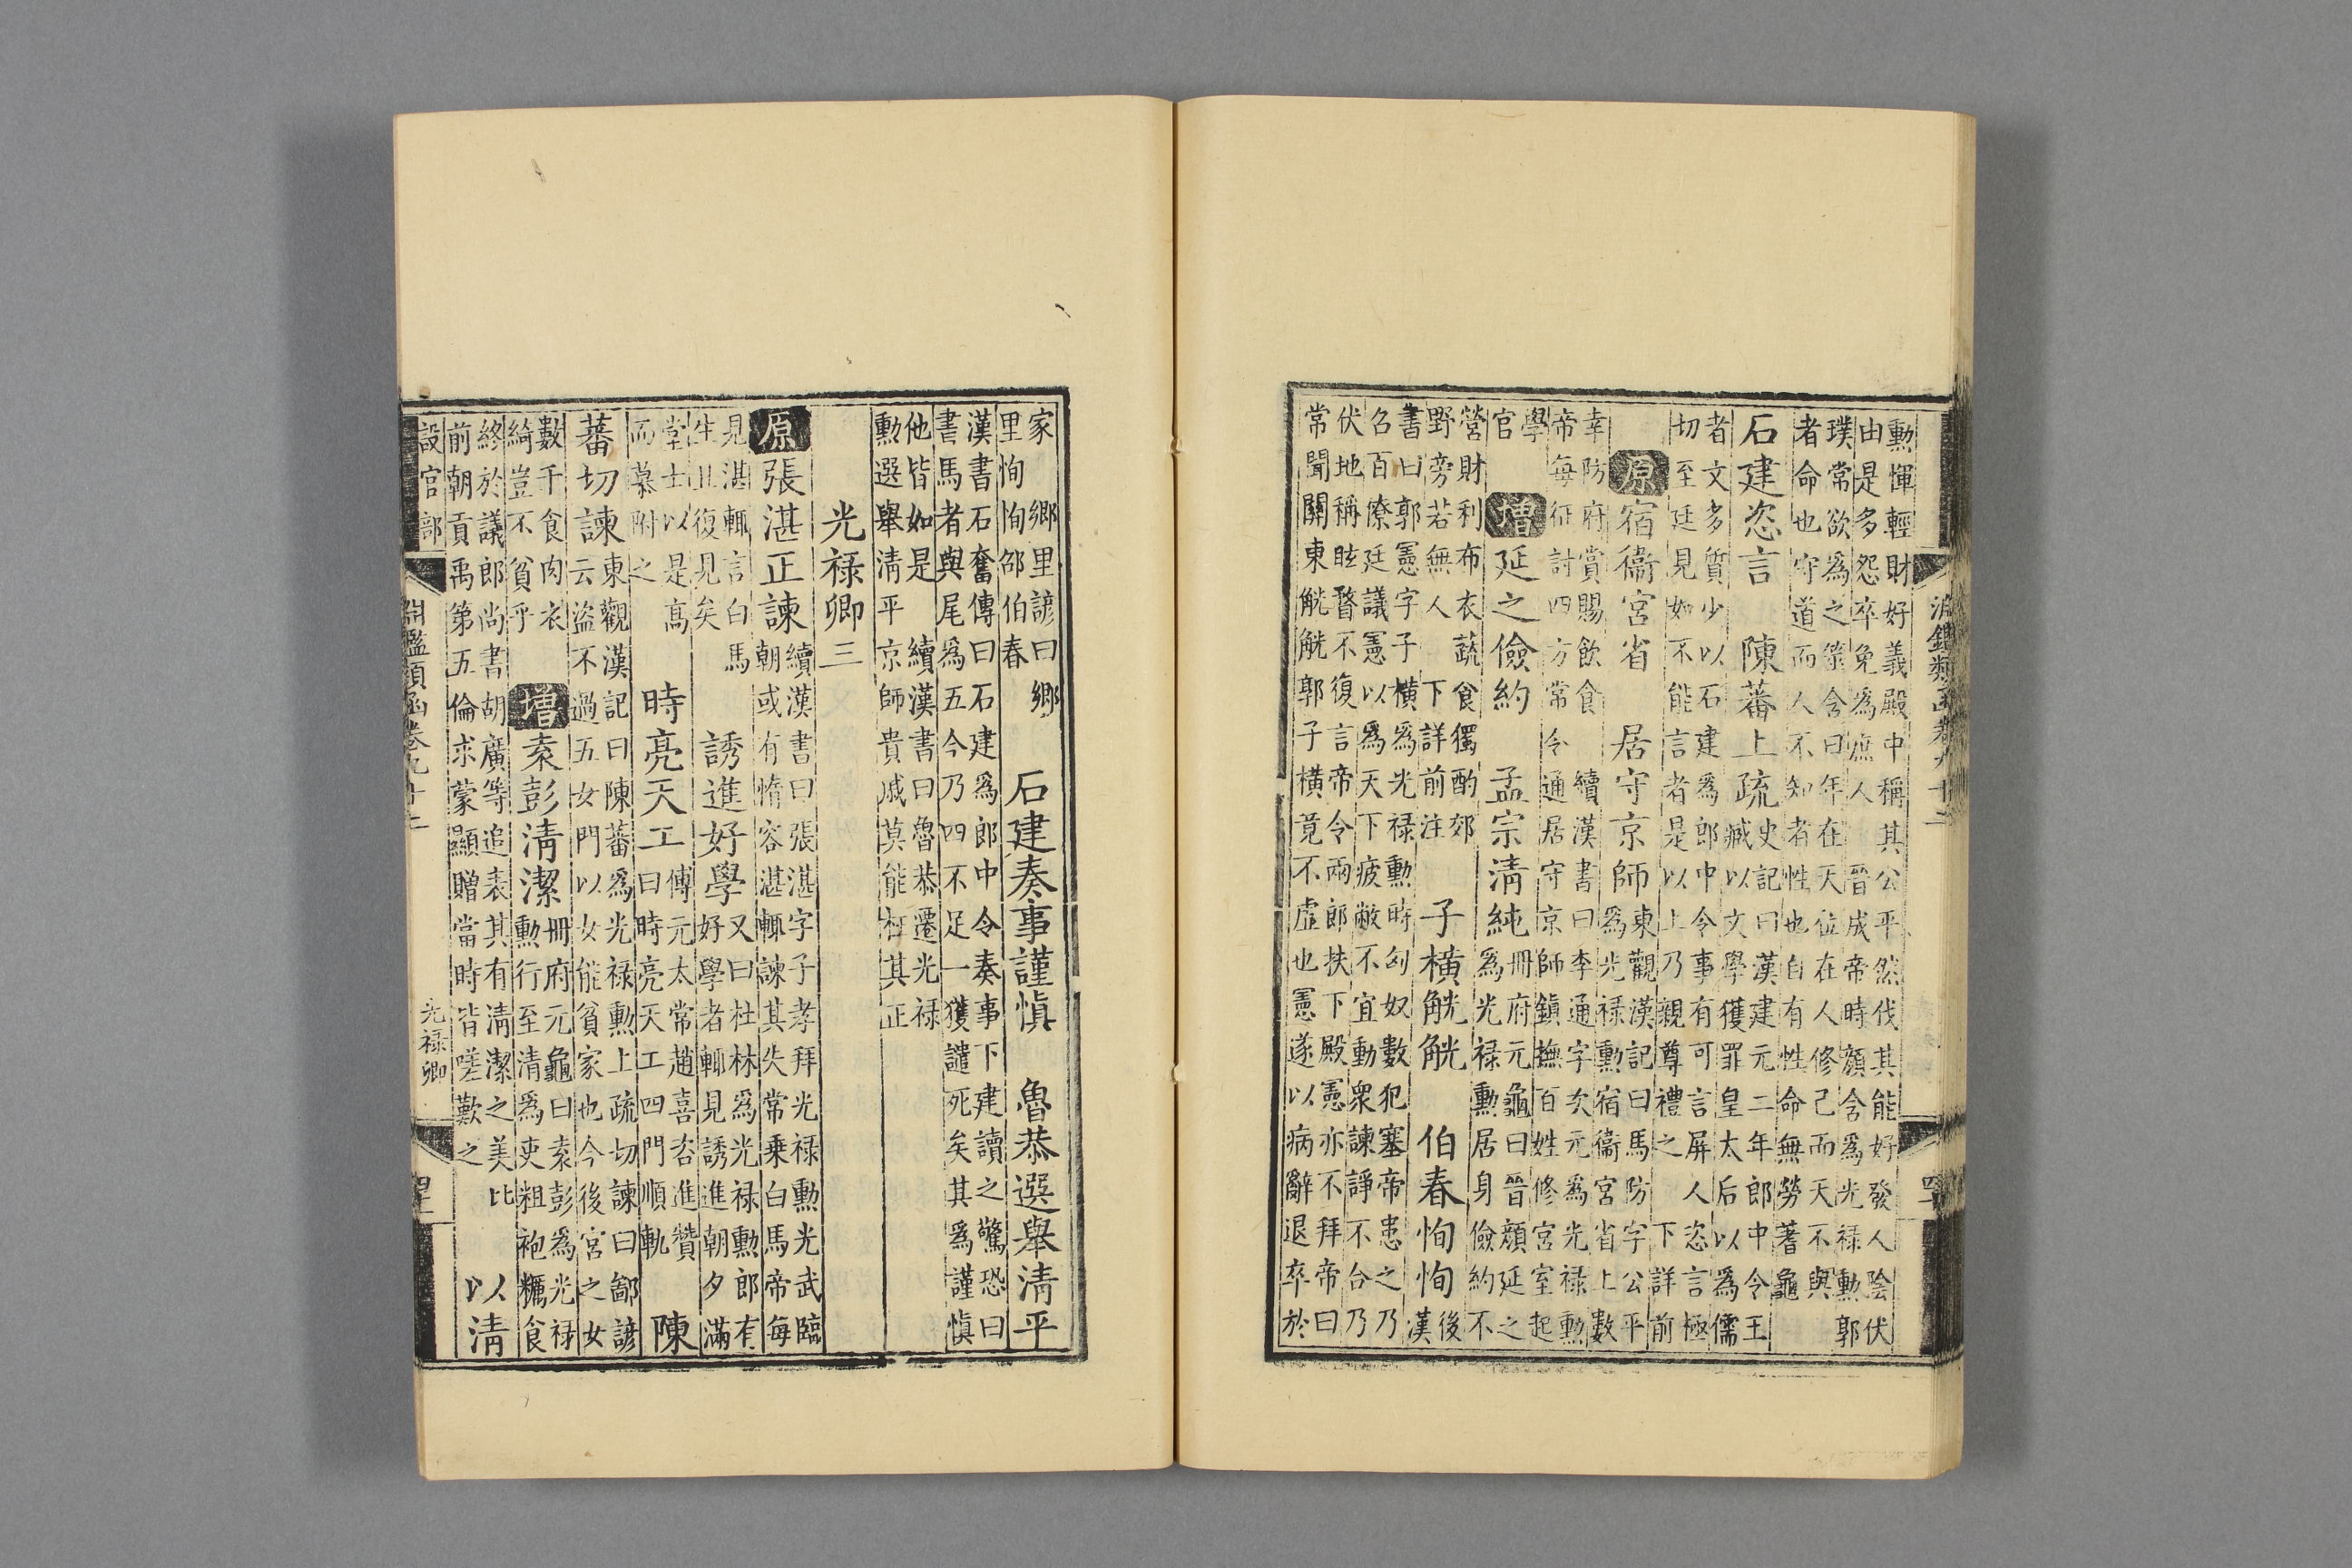 淵鑑類函卷九十二
勲惲輕財好義殿中稱其公平然伐其能好發人陰伏
由是多怨卒免爲庶人 晉成帝時顏含爲光禄勲郭
璞常欲爲之筮含曰年在天位在人修己而天不與
者命也守道而人不知者性也自有性命無勞蓍龜
石建恣言 陳蕃上疏
史記曰漢建元二年郎中令王
臧以文學獲罪皇太后以爲儒
者文多質少以石建爲郎中令事有可言屏人恣言極
切至廷見如不能言者是以上乃親尊禮之 下詳前
原宿衞宮省 居守京師
東觀漢記曰馬防字公平
爲光禄勲宿衞宮省上數
幸防府賞賜飲食 續漢書曰李通字次元爲光禄勲
帝每征討四方常令通居守京師鎮撫百姓修宮室起
學
官
增延之儉約 孟宗清純
冊府元龜曰晉顏延之
爲光禄勲居身儉約不
營財利布衣蔬食獨酌郊
野旁若無人 下詳前注
子橫觥觥 伯春恂恂
後
漢
書曰郭憲字子橫爲光禄勲時匈奴數犯塞帝患之乃
召百僚廷議憲以爲天下疲敝不宜動衆諫諍不合乃
伏地稱眩瞀不復言帝令兩郎扶下殿憲亦不拜帝曰
常聞關東觥觥郭子橫竟不虛也憲遂以病辭退卒於
家 鄉里諺曰鄉
里恂恂邵伯春
石建奏事謹慎 魯恭選舉清平
漢書石奮傳曰石建爲郎中令奏事下建讀之驚恐曰
書馬者與尾爲五今乃四不足一獲譴死矣其爲謹慎
他皆如是 續漢書曰魯恭遷光禄
勲選舉清平京師貴戚莫能枉其正
光禄卿三
原張湛正諫
續漢書曰張湛字子孝拜光禄勲光武臨
朝或有惰容湛輒諫其失常乗白馬帝每
見湛輒言白馬
生且復見矣
誘進好學
又曰杜林爲光禄勲郎有
好學者輒見誘進朝夕滿
堂士以是高
而慕附之
時亮天工
傅元太常趙喜咨進贊
曰時亮天工四門順軌
陳
蕃切諫
東觀漢記曰陳蕃爲光禄勲上疏切諫曰鄙諺
云盜不過五女門以女能貧家也今後宮之女
數千食肉衣
綺豈不貧乎
增袁彭清潔
冊府元龜曰袁彭爲光禄
勲行至清爲吏粗袍糲食
終於議郎尚書胡廣等追表其有清潔之美比
前朝貢禹第五倫求蒙顯贈當時皆嗟歎之
以清
設官部
淵鑑類函卷九十二
光禄卿